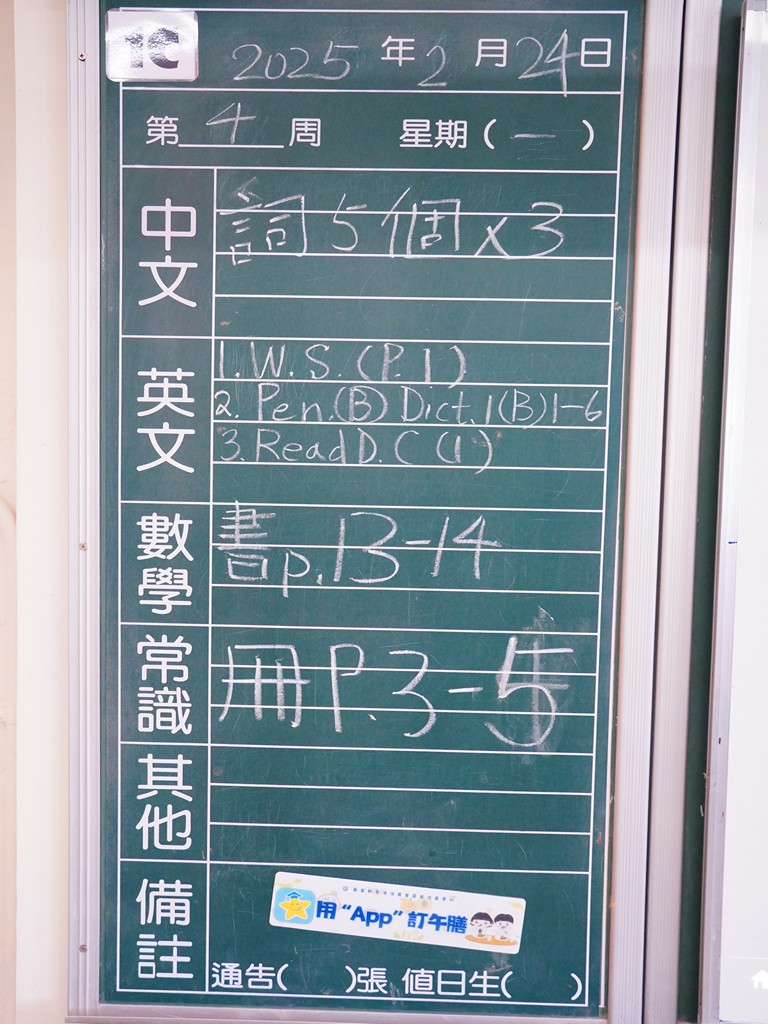 1C
2025年2月24日
第4周 星期(一)
中文
詞5個x3
英文
1.W.S.(P.1)
2. Pen.(B) Dict.1(B)1-6
3.Read D.C (1)
數學
書p.13-14
常識
冊P.3-5
其他
備註
用“App”訂午膳
通告( )張 值日生( )